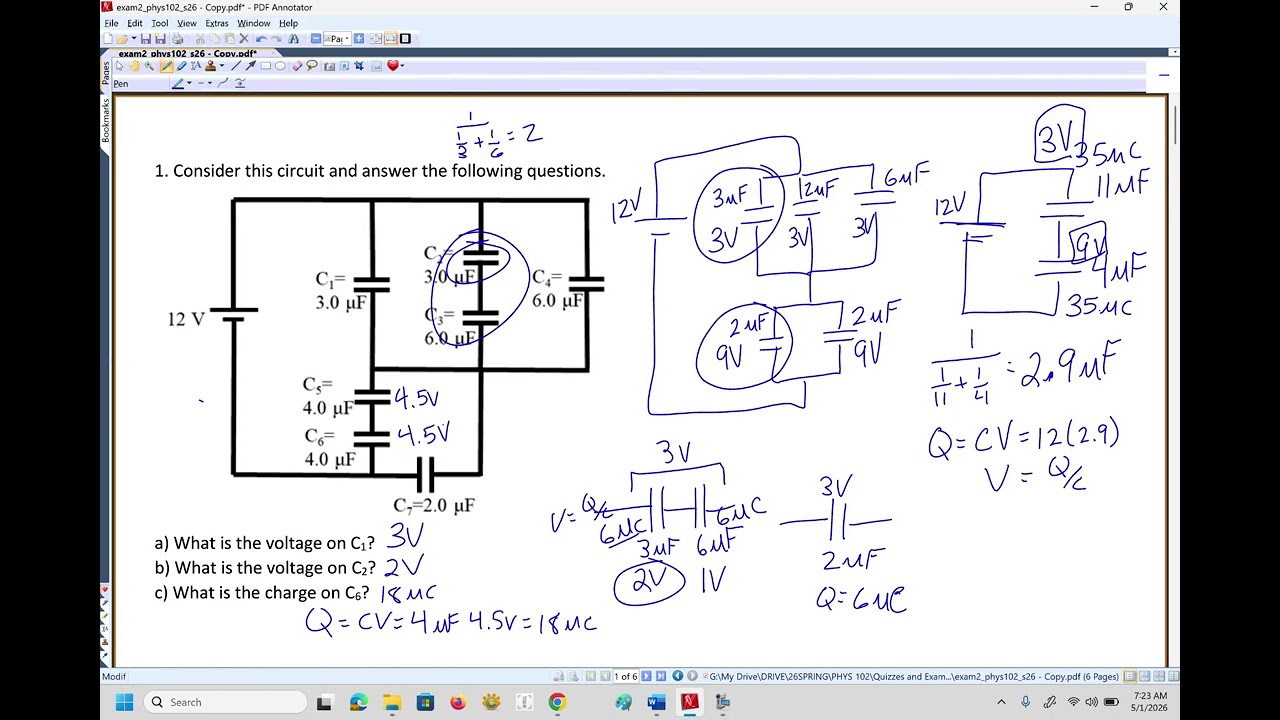 exam2_phys102_s26 - Copy.pdf* - PDF Annotator
File Edit Tool View Extras Window Help
exam2_phys102_s26 - Copy.pdf*
Pen
Pages
Bookmarks
1/(1/3 + 1/6) = 2
1. Consider this circuit and answer the following questions.
12 V
C₁=
3.0 µF
C₂=
3.0 µF
C₃=
6.0 µF
C₄=
6.0 µF
C₅=
4.0 µF
4.5V
C₆=
4.0 µF
4.5V
C₇=2.0 µF
12V
3µF
3V
12µF
3V
6µF
3V
2µF
9V
2µF
9V
3V
35µC
11µF
12V
9V
4µF
35µC
1/(1/11 + 1/4) = 2.9µF
Q = CV = 12(2.9)
V = Q/C
3V
V = Q/C
6µC
6µC
3µF 6µF
2V 1V
3V
2µF
Q = 6µC
a) What is the voltage on C₁? 3V
b) What is the voltage on C₂? 2V
c) What is the charge on C₆? 18µC
Q = CV = 4µF 4.5V = 18µC
Modif
1 of 6
G:\My Drive\DRIVE\26SPRING\PHYS 102\Quizzes and Exam...\exam2_phys102_s26 - Copy.pdf (6 Pages)
Search
7:23 AM
5/1/2026